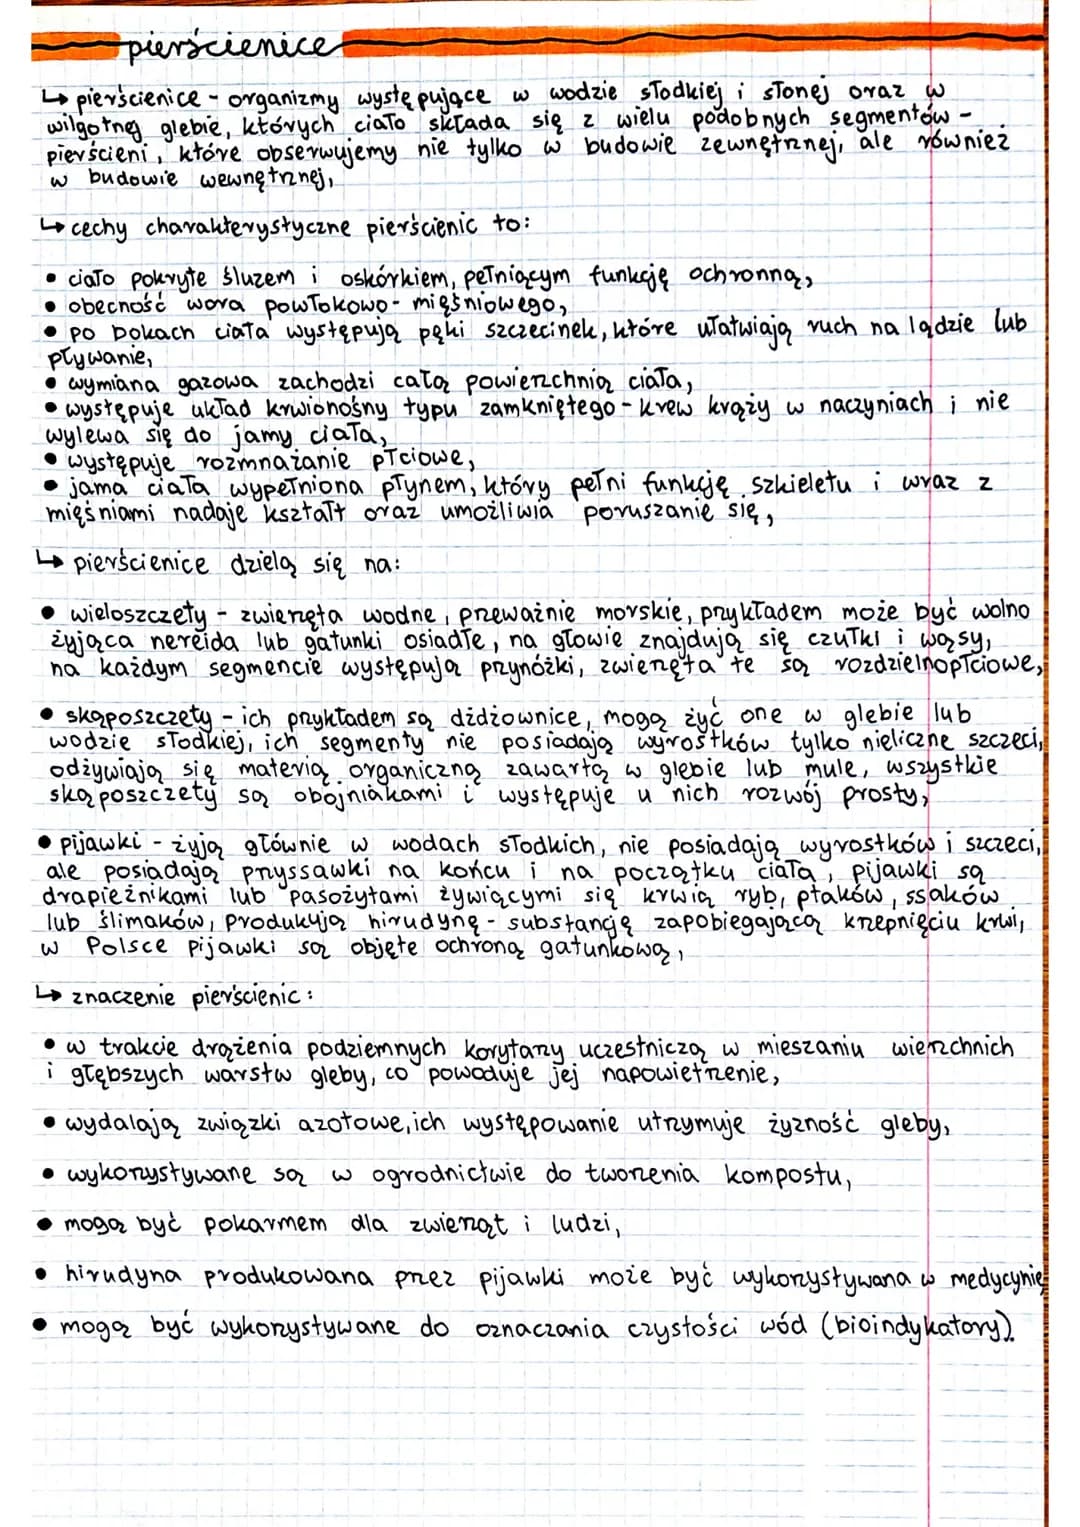 pierścienice
↳ pierścienice - organizmy występujące w wodzie słodkiej i słonej oraz w
wilgotnej glebie, których ciało składa się z wielu podobnych segmentów -
pierścieni, które obserwujemy nie tylko w budowie zewnętrznej, ale również
w budowie wewnętrznej,
↳ cechy charakterystyczne pierścienic to:
• ciało pokryte śluzem i oskórkiem, pełniącym funkcję ochronną,
• obecność wora powłokowo-mięśniowego,
• po bokach ciała występują pęki szczecinek, które ułatwiają ruch na lądzie lub
pływanie,
• wymiana gazowa zachodzi całą powierzchnią ciała,
• występuje układ krwionośny typu zamkniętego - krew krąży w naczyniach i nie
wylewa się do jamy ciała,
• występuje rozmnażanie płciowe,
• jama ciała wypełniona płynem, który pełni funkcję szkieletu i wraz z
mięśniami nadaje kształt oraz umożliwia poruszanie się,
↳ pierścienice dzielą się na:
• wieloszczety - zwierzęta wodne, przeważnie morskie, przykładem może być wolno
żyjąca nereida lub gatunki osiadłe, na głowie znajdują się czułki i wąsy,
na każdym segmencie występują przynóżki, zwierzęta te są rozdzielnopłciowe,
• skąposzczety - ich przykładem są dżdżownice, mogą żyć one w glebie lub
wodzie słodkiej, ich segmenty nie posiadają wyrostków tylko nieliczne szczeci,
odżywiają się materią organiczną zawartą w glebie lub mule, wszystkie
skąposzczety są obojniakami i występuje u nich rozwój prosty,
• pijawki - żyją głównie w wodach słodkich, nie posiadają wyrostków i szczeci,
ale posiadają przyssawki na końcu i na początku ciała, pijawki są
drapieżnikami lub pasożytami żywiącymi się krwią ryb, ptaków, ssaków
lub ślimaków, produkują hirudynę - substancję zapobiegającą krzepnięciu krwi,
w Polsce pijawki są objęte ochroną gatunkową,
↳ znaczenie pierścienic:
• w trakcie drążenia podziemnych korytarzy uczestniczą w mieszaniu wierzchnich
i głębszych warstw gleby, co powoduje jej napowietrzenie,
• wydalają związki azotowe, ich występowanie utrzymuje żyzność gleby,
• wykorzystywane są w ogrodnictwie do tworzenia kompostu,
• mogą być pokarmem dla zwierząt i ludzi,
• hirudyna produkowana przez pijawki może być wykorzystywana w medycynie
• mogą być wykorzystywane do oznaczania czystości wód (bioindykatory).